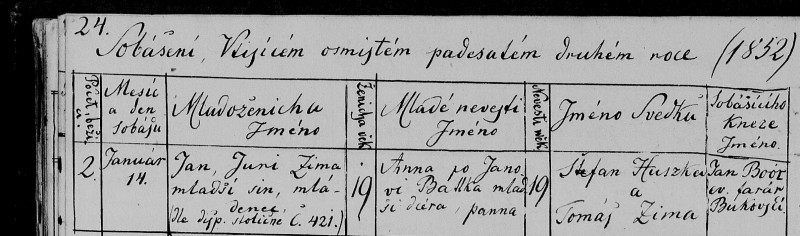 24.
Sobášení, V tisícém osmistém padesatém druhém roce (1852)
Mesíc
a den
sobášu
Mladoženichu
Jméno
Ženicha věk
Mladé nevesti
Jméno
Nevesti věk
Jméno Svedku
Sobášícího
Kneze
Jméno.
2.
Január
14.
Jan, Juri Zima
mladší sin, mlá-
denec
(dle disp. stoličné č. 421.)
19
Anna po Jano
vi Baška mlad
ši dcéra, panna
19
Štefan Huszka
a
Tomáš Zima
Jan Boór
ev. farár
Bukovský